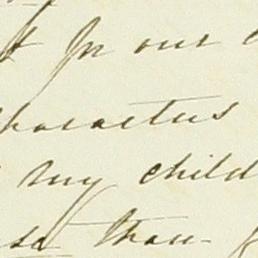 In our
characters
my child
than